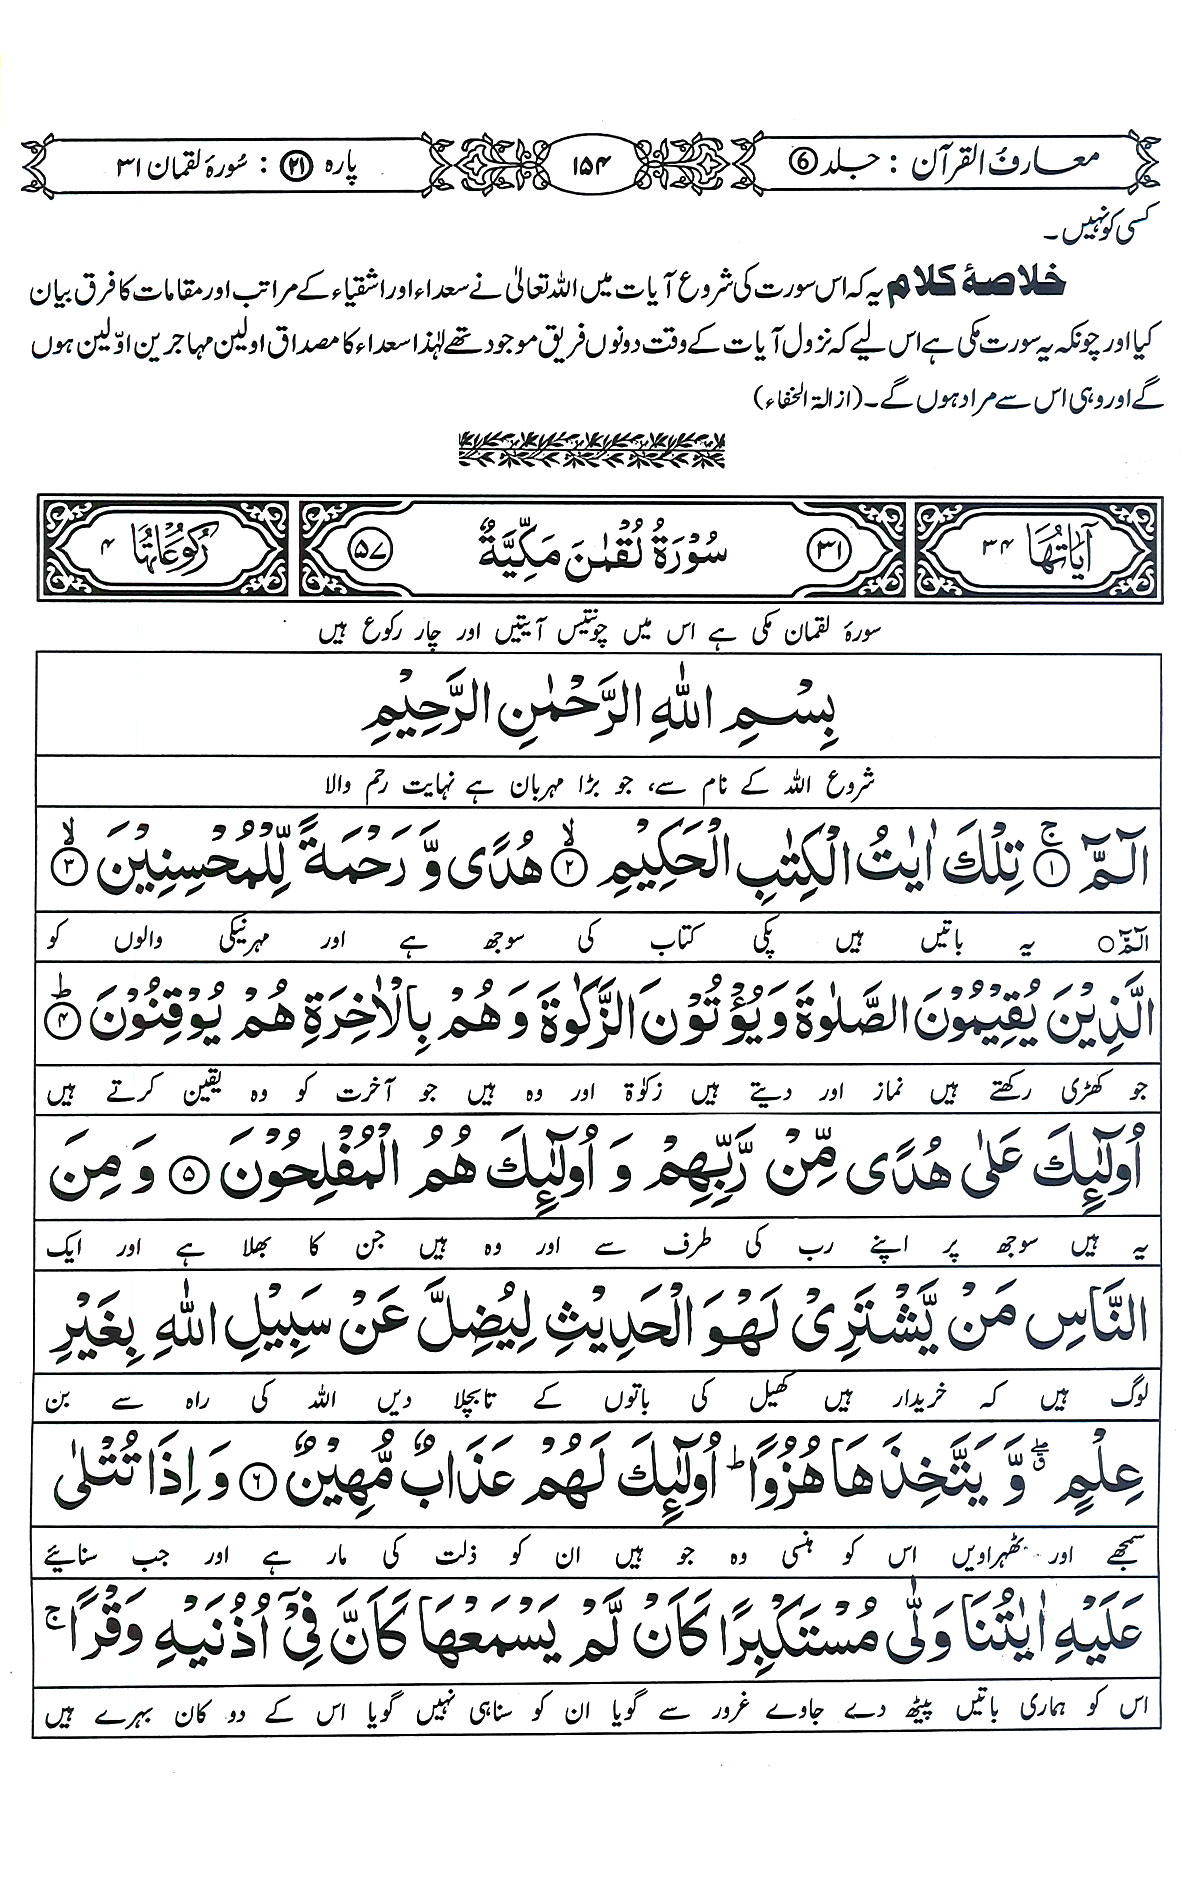 معارف القرآن : جلد ۶
۱۵۴
پارہ ۲۱ : سُورۂ لقمان ۳۱
کسی کو نہیں۔
خلاصۂ کلام یہ کہ اس سورت کی شروع آیات میں اللہ تعالیٰ نے سعداء اور اشقیاء کے مراتب اور مقامات کا فرق بیان
کیا اور چونکہ یہ سورت مکی ہے اس لیے کہ نزول آیات کے وقت دونوں فریق موجود تھے لہٰذا سعداء کا مصداق اولین مہاجرین اوّلین ہوں
گے اور وہی اس سے مراد ہوں گے۔ (ازالۃ الخفاء)
اٰیَاتُهَا ۳۴
۳۱ سُوْرَةُ لُقْمٰنَ مَكِّيَّةٌ ۵۷
رُكُوْعَاتُهَا ۴
سورۂ لقمان مکی ہے اس میں چونتیس آیتیں اور چار رکوع ہیں
بِسْمِ اللّٰهِ الرَّحْمٰنِ الرَّحِيْمِ
شروع اللہ کے نام سے، جو بڑا مہربان ہے نہایت رحم والا
الٓمّٓ ۚ﴿۱﴾ تِلْكَ اٰيٰتُ الْكِتٰبِ الْحَكِيْمِ ۙ﴿۲﴾ هُدًى وَّ رَحْمَةً لِّلْمُحْسِنِيْنَ ۙ﴿۳﴾
الٓمّٓ○ یہ باتیں ہیں پکی کتاب کی سوجھ ہے اور مہر نیکی والوں کو
الَّذِيْنَ يُقِيْمُوْنَ الصَّلٰوةَ وَ يُؤْتُوْنَ الزَّكٰوةَ وَ هُمْ بِالْاٰخِرَةِ هُمْ يُوْقِنُوْنَ ؕ﴿۴﴾
جو کھڑی رکھتے ہیں نماز اور دیتے ہیں زکوٰۃ اور وہ ہیں جو آخرت کو وہ یقین کرتے ہیں
اُولٰٓئِكَ عَلٰى هُدًى مِّنْ رَّبِّهِمْ وَ اُولٰٓئِكَ هُمُ الْمُفْلِحُوْنَ ﴿۵﴾ وَ مِنَ
یہ ہیں سوجھ پر اپنے رب کی طرف سے اور وہ ہیں جن کا بھلا ہے اور ایک
النَّاسِ مَنْ يَّشْتَرِيْ لَهْوَ الْحَدِيْثِ لِيُضِلَّ عَنْ سَبِيْلِ اللّٰهِ بِغَيْرِ
لوگ ہیں کہ خریدار ہیں کھیل کی باتوں کے تابچلا دیں اللہ کی راہ سے بن
عِلْمٍ ۖۗ وَّ يَتَّخِذَهَا هُزُوًا ؕ اُولٰٓئِكَ لَهُمْ عَذَابٌ مُّهِيْنٌ ﴿۶﴾ وَ اِذَا تُتْلٰى
سمجھے اور ٹھہراویں اس کو ہنسی وہ جو ہیں ان کو ذلت کی مار ہے اور جب سنائیے
عَلَيْهِ اٰيٰتُنَا وَلّٰى مُسْتَكْبِرًا كَاَنْ لَّمْ يَسْمَعْهَا كَاَنَّ فِيْٓ اُذُنَيْهِ وَقْرًا ۚ
اس کو ہماری باتیں پیٹھ دے جاوے غرور سے گویا ان کو سناہی نہیں گویا اس کے دو کان بہرے ہیں